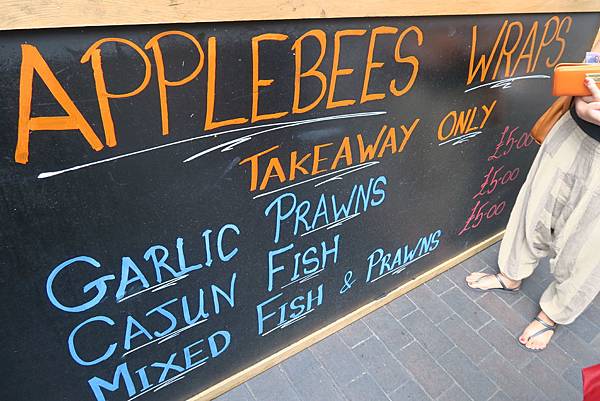 APPLEBEES WRAPS
TAKEAWAY ONLY
GARLIC PRAWNS £5·00
CAJUN FISH £5·00
MIXED FISH & PRAWNS £5·00